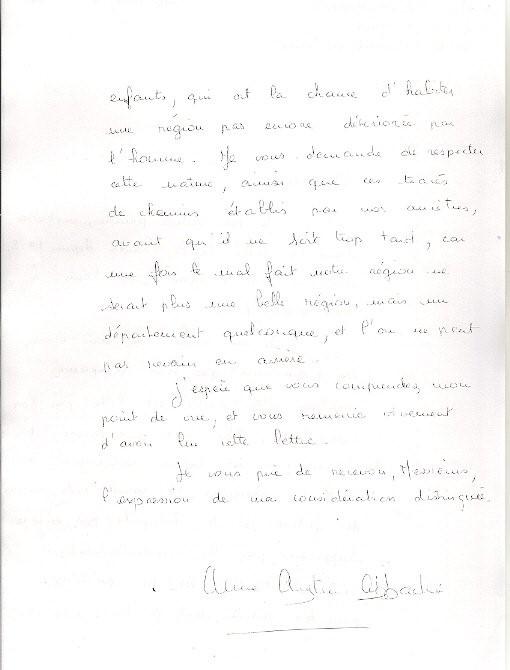 enfants, qui ont la chance d'habiter
une région pas encore détériorée par
l'homme. Je vous demande de respecter
cette nature, ainsi que ces tracés
de chemins établis par nos ancêtres,
avant qu'il ne soit trop tard, car
une fois le mal fait notre région ne
serait plus une belle région, mais un
département quelconque, et l'on ne peut
pas revenir en arrière.
J'espère que vous comprendrez mon
point de vue, et vous remercie vivement
d'avoir lu cette lettre.
Je vous prie de recevoir, Messieurs,
l'expression de ma considération distinguée.